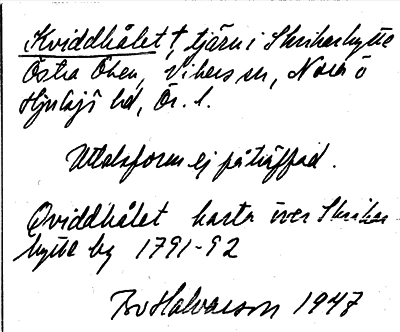 Kviddhålet †, tjärn i Skrikarhytte
Östra Öken, Vikers sn, Nora o
Hjulsjö hd, Ör. l.
Uttalsform ej påträffad.
Qviddhålet karta över Skrikar-
hytte by 1791-92
Bo Halvarson 1947